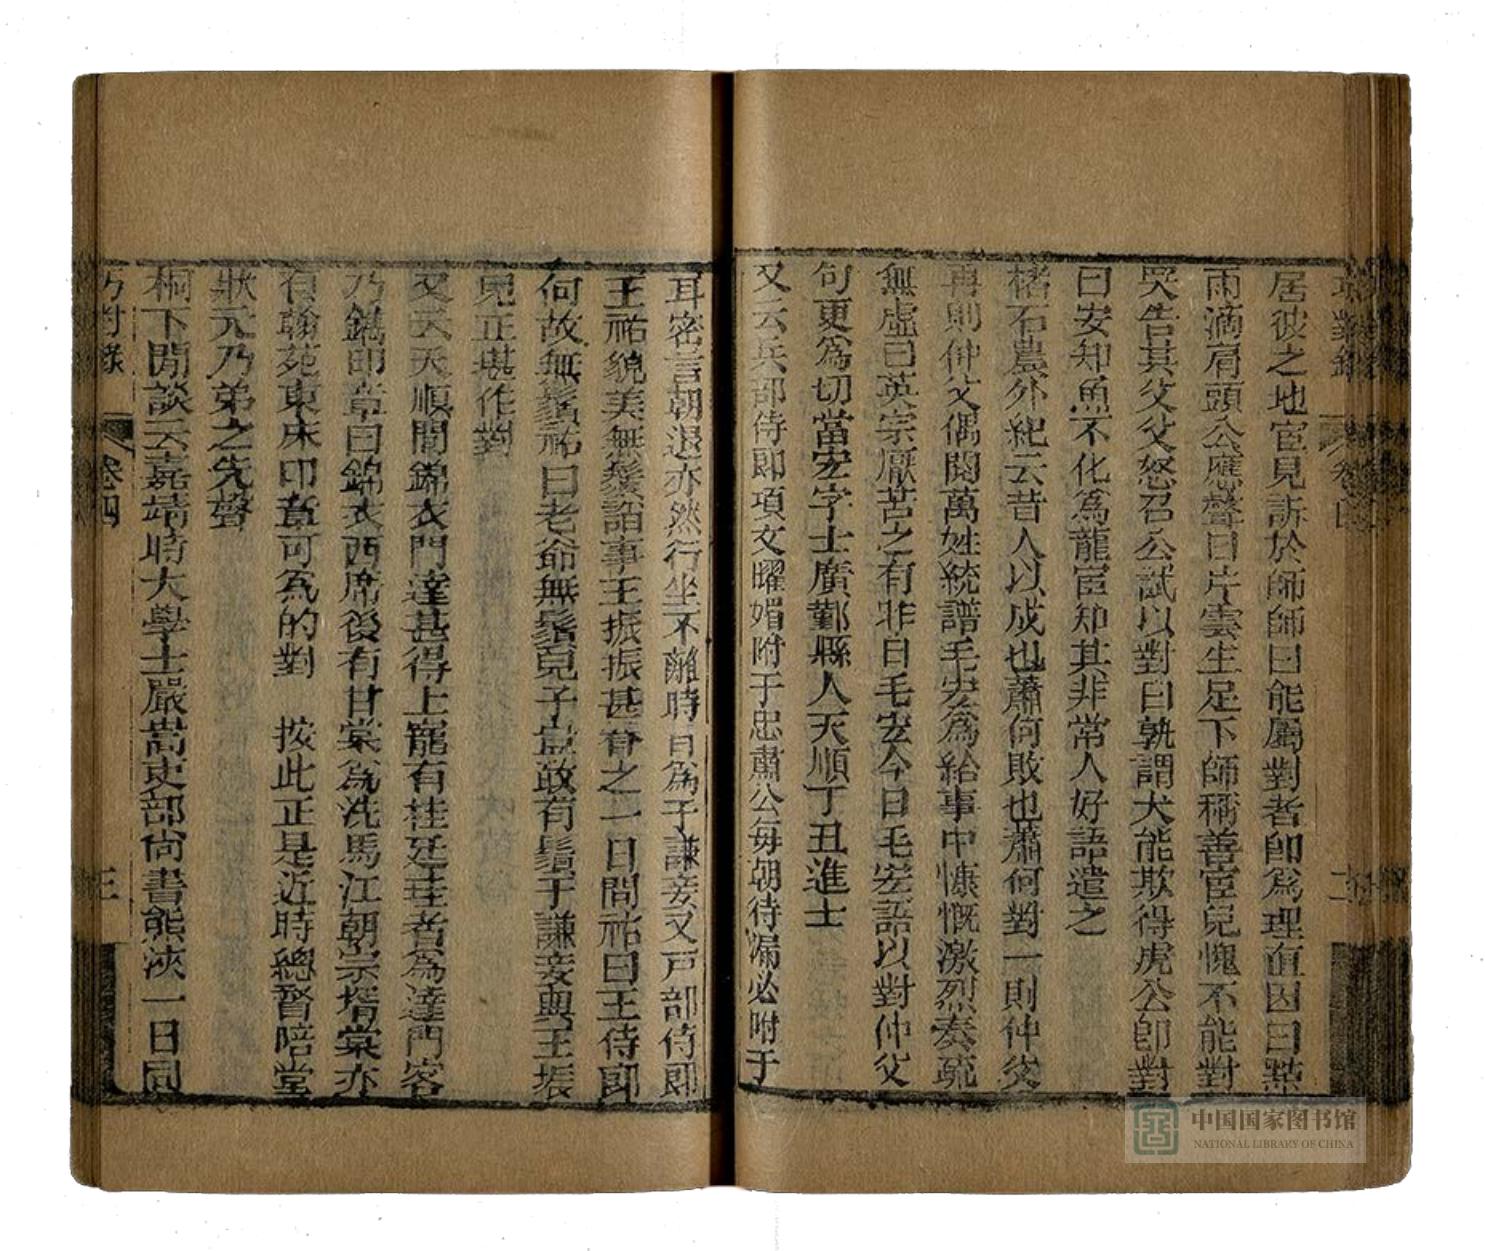 巧對錄 卷四 二
居彼之地宦見訴於師師曰能屬對者卽爲理直因曰點
雨滴肩頭公應聲曰片雲生足下師稱善宦兒愧不能對
哭告其父父怒召公試以對曰孰謂犬能欺得虎公卽對
曰安知魚不化爲龍宦知其非常人好語遣之
楮石農外紀云昔人以成也蕭何敗也蕭何對一則仲父
再則仲父偶閱萬姓統譜毛宏爲給事中慷慨激烈奏疏
無虛日英宗厭苦之有昨日毛宏今日毛宏語以對仲父
句更爲切當宏字士廣鄞縣人天順丁丑進士
又云兵部侍郎項文曜媚附于忠肅公每朝待漏必附于
耳密言朝退亦然行坐不離時目爲于謙妾又戸部侍郎
王祐貌美無鬚諂事王振振甚眷之一日問祐曰王侍郎
何故無鬚祐曰老爺無鬚兒子豈敢有鬚于謙妾與王振
兒正堪作對
又云天順間錦衣門達甚得上寵有桂廷珪者爲達門客
乃鐫印章曰錦衣西席後有甘棠爲洗馬江朝宗壻棠亦
有翰苑東床印章可爲的對　按此正是近時總督陪堂
狀元乃弟之先聲
桐下閒談云嘉靖時大學士嚴嵩吏部尙書熊浹一日同
巧對錄 卷四 三
中国国家图书馆
NATIONAL LIBRARY OF CHINA